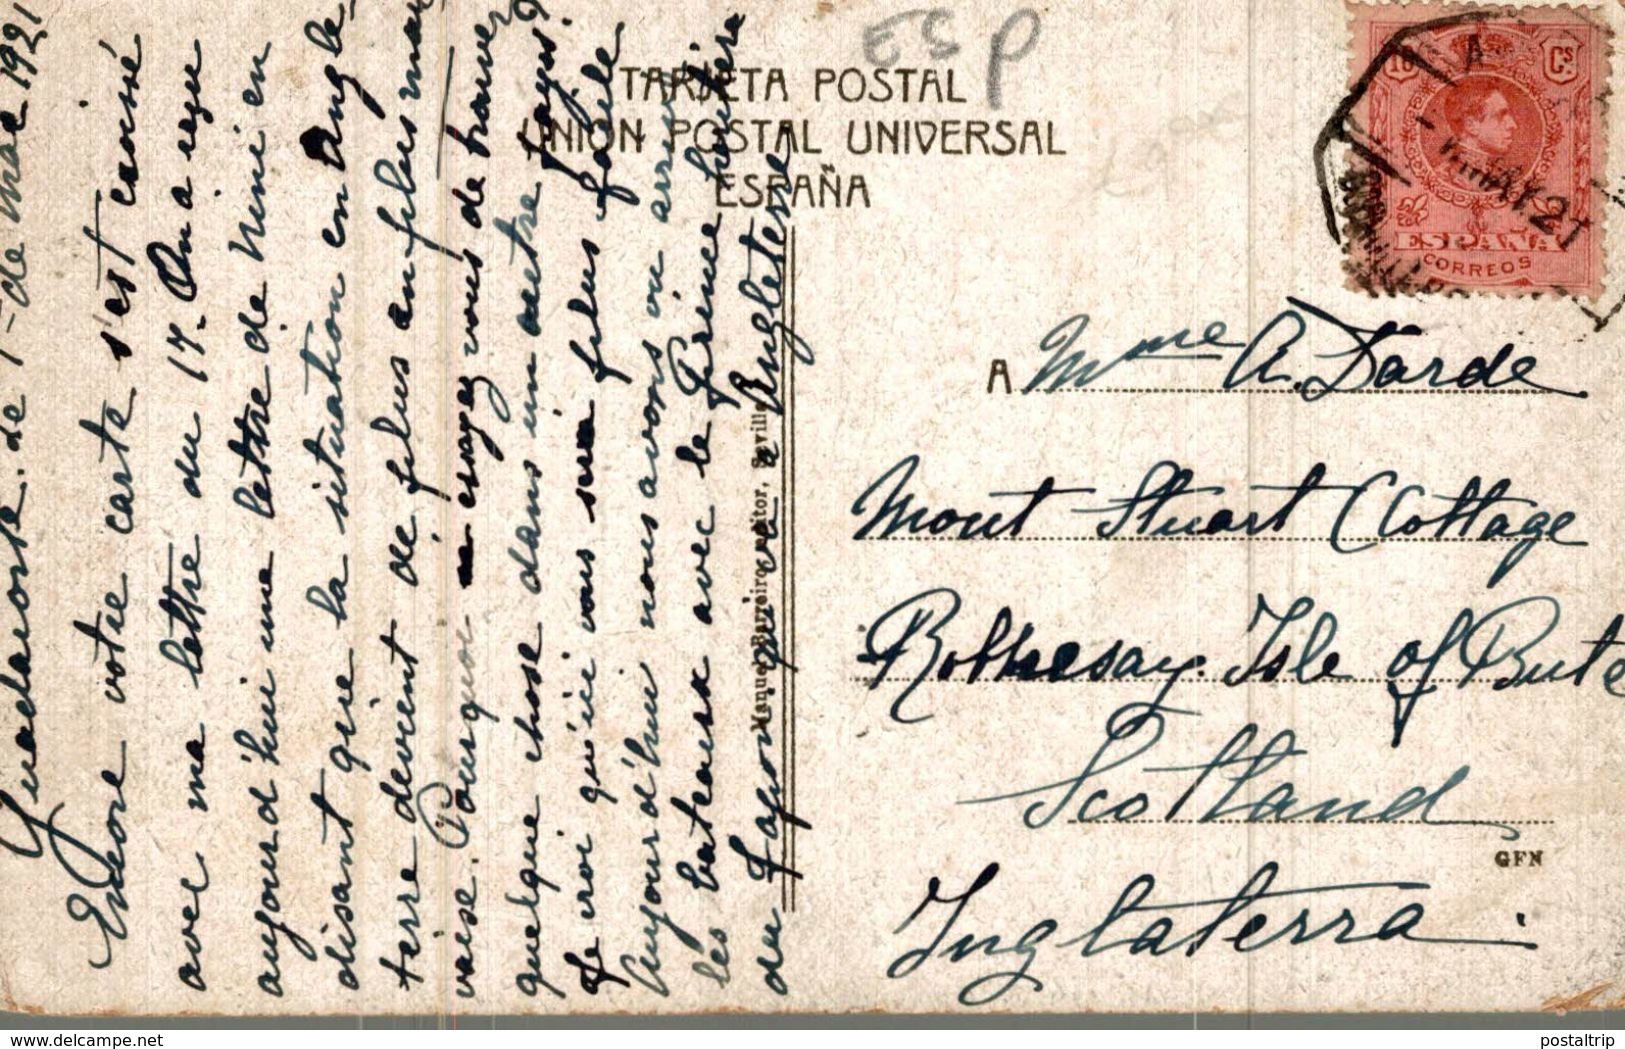 ESP
TARJETA POSTAL
UNION POSTAL UNIVERSAL
ESPAÑA
10 Cs.
ESPAÑA
CORREOS
MAY.21
A Mme A. Darde
Mont Stuart Cottage
Rothesay. Isle of Bute
Scotland
Inglaterra.
GFN
Manuel Barreiro, editor, Sevilla
de 1 - de Mai 1921
Encore votre carte s'est croisé
avec ma lettre du 17. On a reçu
aujourd'hui une lettre de Mimi en
disant que la situation en Angle-
terre devient de plus en plus mau-
vaise. Pourquoi n essayez vous de trouver
quelque chose dans un autre pays?
Je croi qu'ici vous sera plus facile
Aujourd'hui nous avons vu arriver
les bateaux avec le Prince héritier
du Japon qui va a Angleterre
postaltrip.com
postaltrip